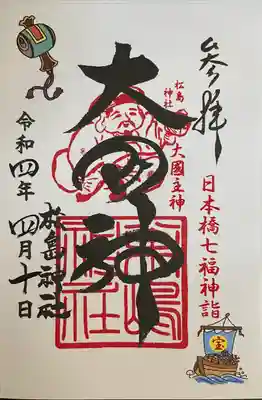 奉拝
日本橋七福神詣
宝
松島神社
大國主神
大国神
松島神社
令和四年四月十日